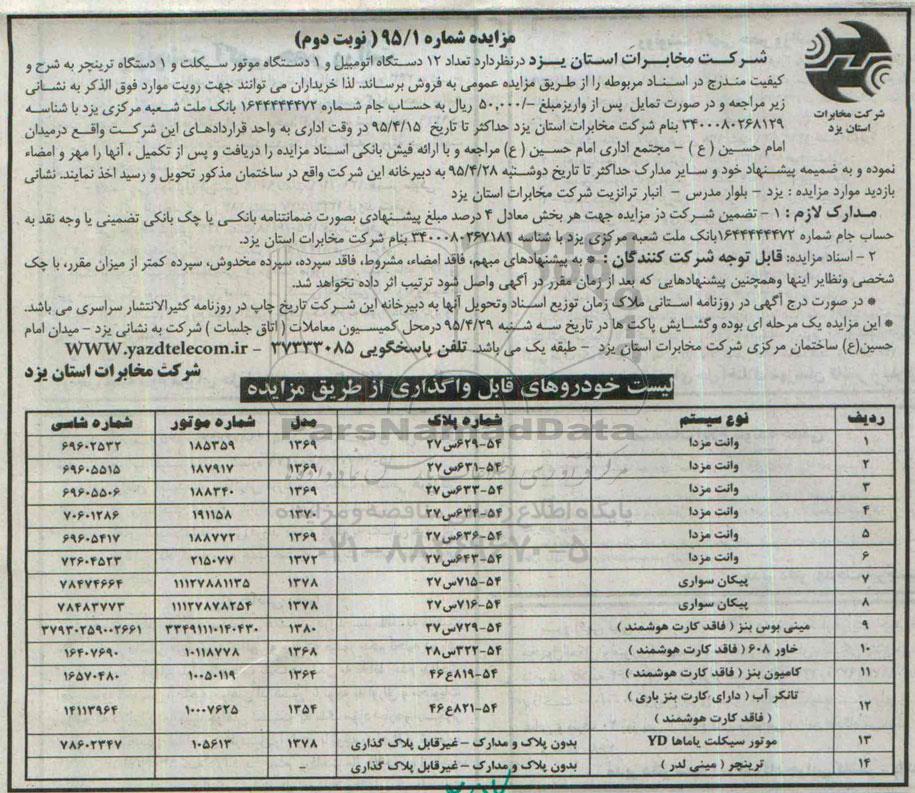 مزایده شماره ۹۵/۱ ( نوبت دوم)
شرکت مخابرات استان یزد
شرکت مخابرات استان یزد درنظردارد تعداد ۱۲ دستگاه اتومبیل و ۱ دستگاه موتور سیکلت و ۱ دستگاه ترینچر به شرح و
کیفیت مندرج در اسناد مربوطه را از طریق مزایده عمومی به فروش برساند. لذا خریداران می توانند جهت رویت موارد فوق الذکر به نشانی
زیر مراجعه و در صورت تمایل پس از واریزمبلغ -/۵۰,۰۰۰ ریال به حساب جام شماره ۱۶۴۴۴۴۴۴۷۲ بانک ملت شعبه مرکزی یزد با شناسه
۳۴۰۰۰۸۰۲۶۸۱۲۹ بنام شرکت مخابرات استان یزد حداکثر تا تاریخ ۹۵/۴/۱۵ در وقت اداری به واحد قراردادهای این شرکت واقع درمیدان
امام حسین ( ع ) – مجتمع اداری امام حسین ( ع) مراجعه و با ارائه فیش بانکی اسناد مزایده را دریافت و پس از تکمیل ، آنها را مهر و امضاء
نموده و به ضمیمه پیشنهاد خود و سایر مدارک حداکثر تا تاریخ دوشنبه ۹۵/۴/۲۸ به دبیرخانه این شرکت واقع در ساختمان مذکور تحویل و رسید اخذ نمایند. نشانی
بازدید موارد مزایده : یزد – بلوار مدرس – انبار ترانزیت شرکت مخابرات استان یزد
مدارک لازم : ۱ – تضمین شرکت در مزایده جهت هر بخش معادل ۴ درصد مبلغ پیشنهادی بصورت ضمانتنامه بانکی یا چک بانکی تضمینی یا وجه نقد به
حساب جام شماره ۱۶۴۴۴۴۴۴۷۲بانک ملت شعبه مرکزی یزد با شناسه ۳۴۰۰۰۸۰۲۶۷۱۸۱ بنام شرکت مخابرات استان یزد.
۲ – اسناد مزایده: قابل توجه شرکت کنندگان : * به پیشنهادهای مبهم، فاقد امضاء، مشروط، فاقد سپرده، سپرده مخدوش، سپرده کمتر از میزان مقرر، با چک
شخصی ونظایر اینها وهمچنین پیشنهادهایی که بعد از زمان مقرر در آگهی واصل شود ترتیب اثر داده نخواهد شد.
* در صورت درج آگهی در روزنامه استانی ملاک زمان توزیع اسناد وتحویل آنها به دبیرخانه این شرکت تاریخ چاپ در روزنامه کثیرالانتشار سراسری می باشد.
* این مزایده یک مرحله ای بوده وگشایش پاکت ها در تاریخ سه شنبه ۹۵/۴/۲۹ درمحل کمیسیون معاملات ( اتاق جلسات ) شرکت به نشانی یزد – میدان امام
حسین(ع) ساختمان مرکزی شرکت مخابرات استان یزد – طبقه یک می باشد. تلفن پاسخگویی ۳۷۲۳۳۰۸۵ – WWW.yazdtelecom.ir
شرکت مخابرات استان یزد
لیست خودروهای قابل واگذاری از طریق مزایده
ردیف نوع سیستم شماره پلاک مدل شماره موتور شماره شاسی
۱ وانت مزدا ۵۴-۶۲۹س۲۷ ۱۳۶۹ ۱۸۵۳۵۹ ۶۹۶۰۲۵۳۲
۲ وانت مزدا ۵۴-۶۳۱س۲۷ ۱۳۶۹ ۱۸۷۹۱۷ ۶۹۶۰۵۵۱۵
۳ وانت مزدا ۵۴-۶۳۳س۲۷ ۱۳۶۹ ۱۸۸۳۴۰ ۶۹۶۰۵۵۰۶
۴ وانت مزدا ۵۴-۶۳۴س۲۷ ۱۳۷۰ ۱۹۱۱۵۸ ۷۰۶۰۱۲۸۶
۵ وانت مزدا ۵۴-۶۳۶س۲۷ ۱۳۶۹ ۱۸۸۷۷۲ ۶۹۶۰۵۴۱۷
۶ وانت مزدا ۵۴-۶۴۳س۲۷ ۱۳۷۲ ۲۱۵۰۷۷ ۷۲۶۰۴۵۲۳
۷ پیکان سواری ۵۴-۷۱۵س۲۷ ۱۳۷۸ ۱۱۱۲۷۸۸۱۱۳۵ ۷۸۴۷۴۶۶۴
۸ پیکان سواری ۵۴-۷۱۶س۲۷ ۱۳۷۸ ۱۱۱۲۷۸۷۸۲۵۴ ۷۸۴۸۳۷۷۳
۹ مینی بوس بنز ( فاقد کارت هوشمند ) ۵۴-۷۲۹س۲۷ ۱۳۸۰ ۳۳۴۹۱۱۱۰۱۴۰۴۳۰ ۳۷۹۳۰۲۵۹۰۰۲۶۶۱
۱۰ خاور ۶۰۸ ( فاقد کارت هوشمند ) ۵۴-۳۲۲س۲۸ ۱۳۶۸ ۱۰۱۱۸۷۷۸ ۱۶۴۰۷۶۹۰
۱۱ کامیون بنز ( فاقد کارت هوشمند ) ۵۴-۸۱۹ع۴۶ ۱۳۶۴ ۱۰۰۵۰۱۱۹ ۱۶۵۷۰۴۸۰
۱۲ تانکر آب ( دارای کارت بنز باری ) ۵۴-۸۲۱ع۴۶ ۱۳۵۴ ۱۰۰۰۷۶۲۵ ۱۴۱۱۳۹۶۴
( فاقد کارت هوشمند )
۱۳ موتور سیکلت یاماها YD بدون پلاک و مدارک – غیرقابل پلاک گذاری ۱۳۷۸ ۱۰۵۶۱۳ ۷۸۶۰۲۳۴۷
۱۴ ترینچر ( مینی لدر ) بدون پلاک و مدارک – غیرقابل پلاک گذاری –
ParsNamadData
پایگاه اطلاع رسانی مناقصه و مزایده